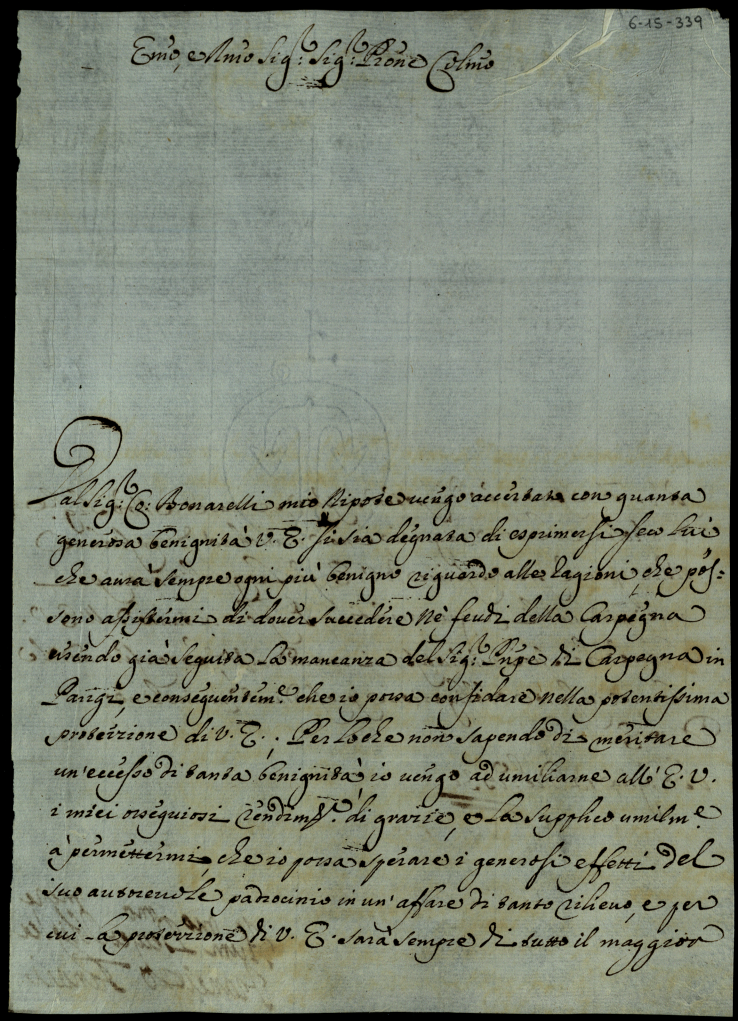 6-15-339
Emo, e Rmo Sig.r Sig.r Prone Colmo
Dal Sig.r Co: Bonarelli mio Nipote vengo accertata con quanta
generosa benignità V. E. si sia degnata di esprimersi seco Lui
che avrà sempre ogni più benigno riguardo alle ragioni, che pos=
sono assistermi di dover succedere nè feudi della Carpegna
essendo già seguita la mancanza del Sig.r Pnpe di Carpegna in
Parigi, e conseguentem.e che io possa confidare nella potentissima
protezione di V. E.; Per loche non sapendo di meritare
un'eccesso di tanta benignità, io vengo ad umiliarne all' E. V.
i miei ossequiosi rendim.ti di grazie, e La supplico umilm.e
à permettermi, che io possa sperare i generosi effetti del
suo autorevole padrocinio in un' affare di tanto rilievo, e per
cui la protezzione di V. E. sarà sempre di tutto il maggior